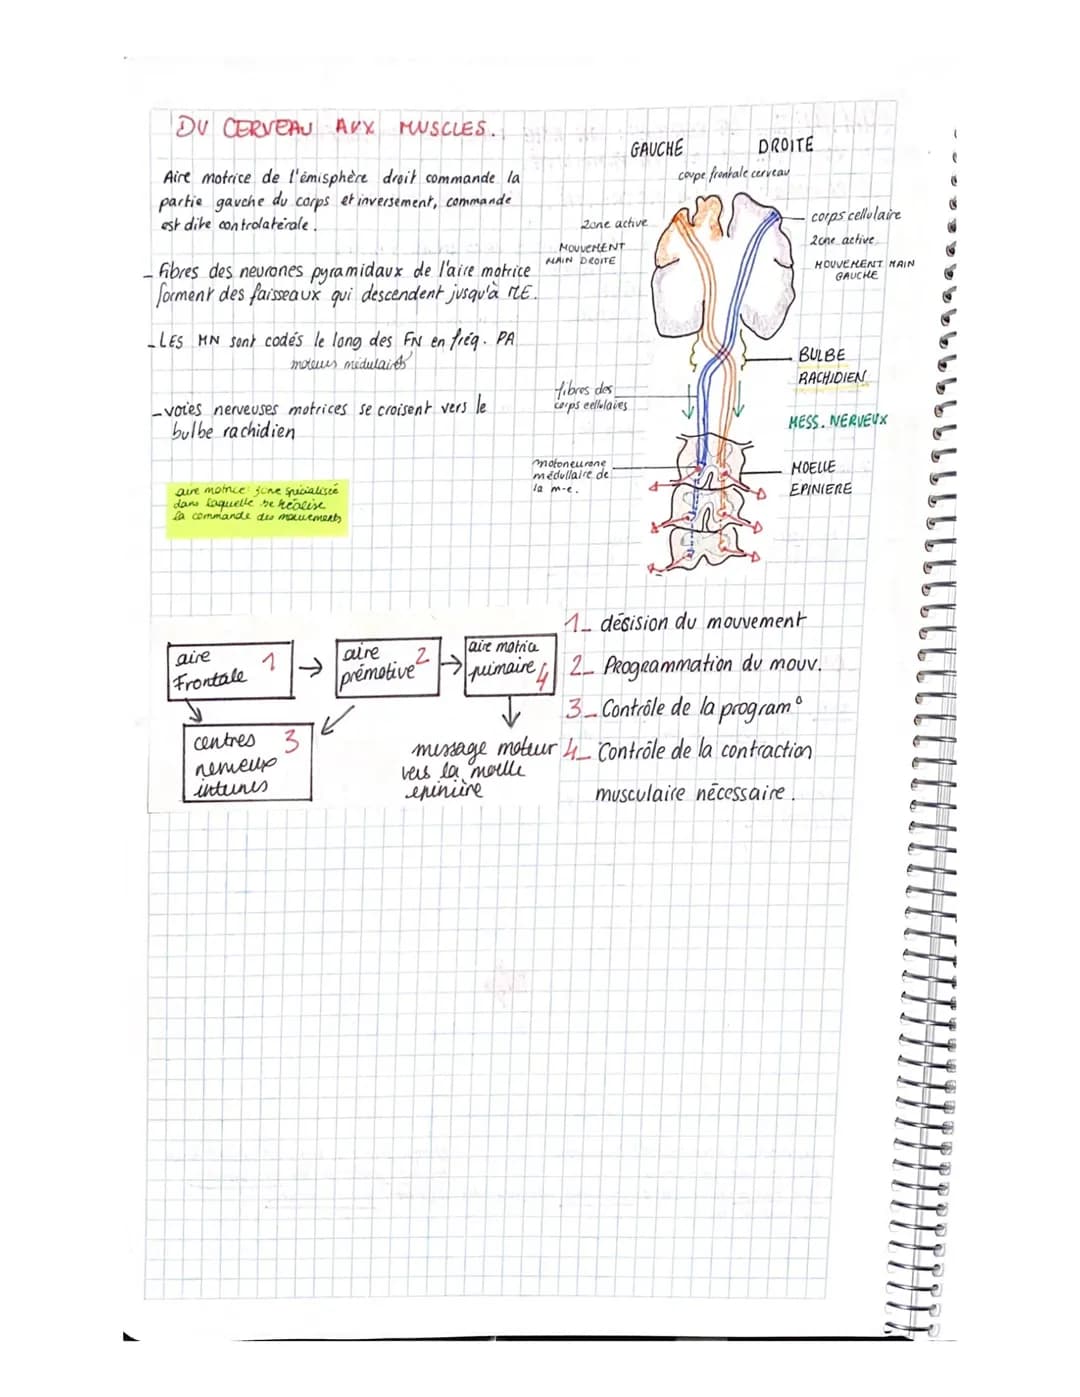 DU CERVEAU AUX MUSCLES.
Aire motrice de l'émisphère droit commande la
partie gauche du corps et inversement, commande
est dite controlatérale.
- Fibres des neurones pyramidaux de l'aire motrice
forment des faisseaux qui descendent jusqu'à ME.
- LES MN sont codés le long des FN en fréq. PA
moteurs médulaires
- voies nerveuses motrices se croisent vers le
bulbe rachidien
aire motrice: zone spécialisée
dans laquelle se réalise
la commande des mouvements
GAUCHE
DROITE
coupe frontale cerveau
zone active
MOUVEMENT
MAIN DROITE
corps cellulaire
zone active
MOUVEMENT MAIN
GAUCHE
BULBE
RACHIDIEN
fibres des
corps cellulaires
MESS. NERVEUX
motoneurone
médullaire de
la m-e.
MOELLE
EPINIERE
aire
Frontale 1
aire 2
prémotive
aire motrice
primaire 4
centres 3
nerveux
internes
message moteur
vers la moelle
epinière
1_ désision du mouvement
2_ Programmation du mouv.
3_ Contrôle de la program°
4_ Contrôle de la contraction
musculaire nécessaire.